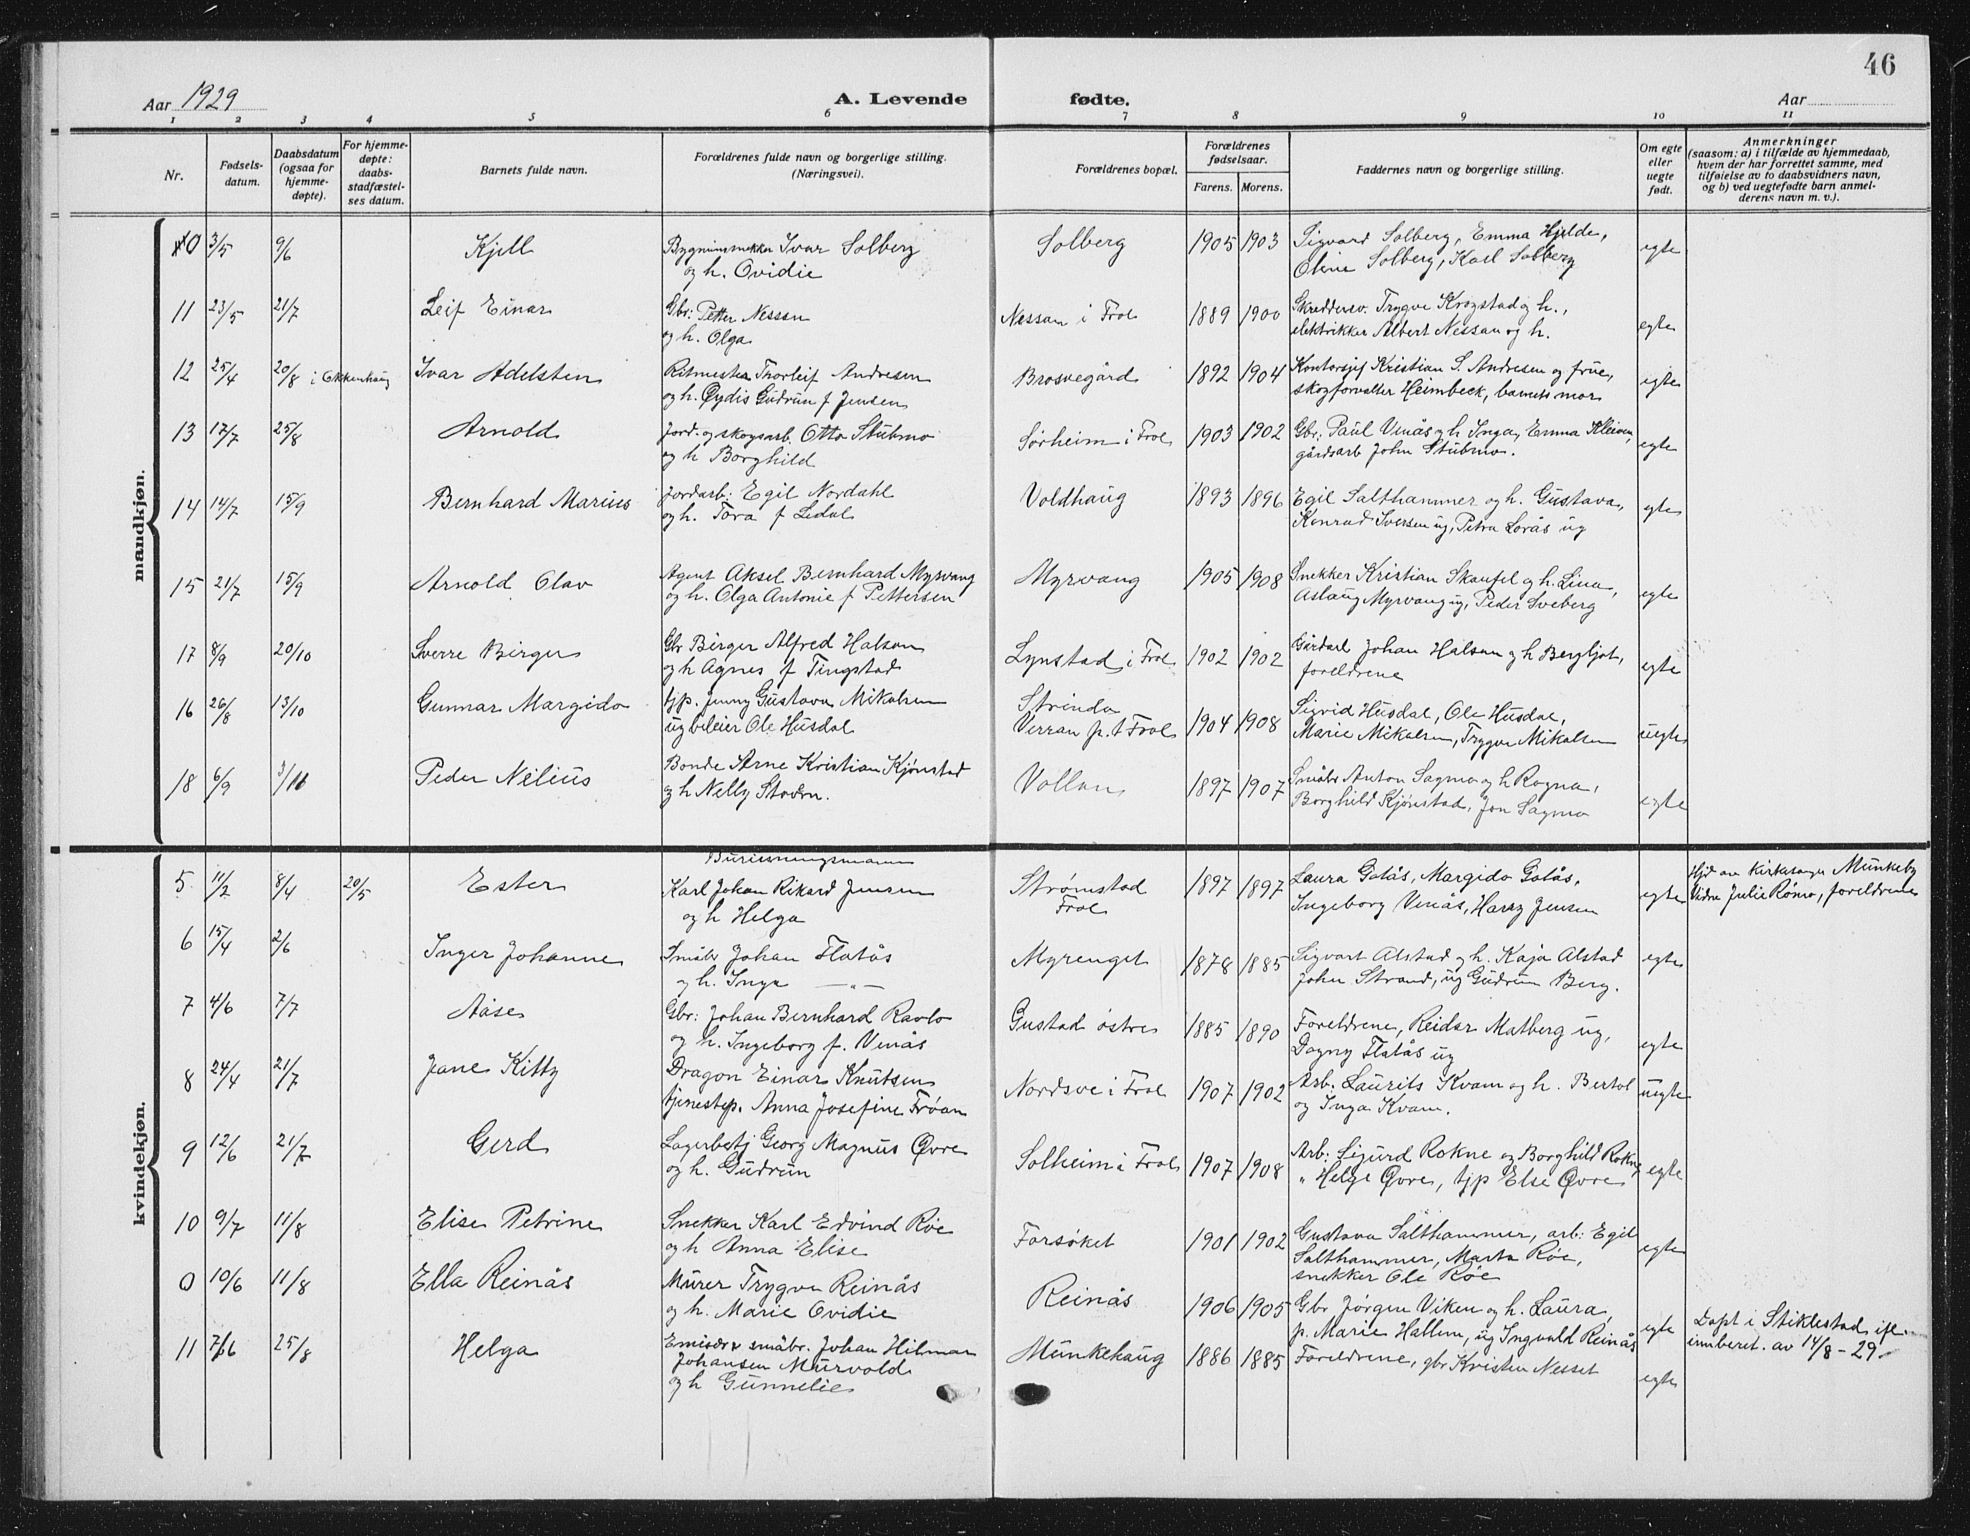 46
Aar 1929
A. Levende fødte.
Aar
1 2 3 4 5 6 7 8 9 10 11
Nr.
Fødsels-
datum.
Daabsdatum
(ogsaa for
hjemme-
døpte).
For hjemme-
døpte:
daabs-
stadfæstel-
ses datum.
Barnets fulde navn.
Forældrenes fulde navn og borgerlige stilling.
(Næringsvei).
Forældrenes bopæl.
Forældrenes
fødselsaar.
Farens. Morens.
Faddernes navn og borgerlige stilling.
Om egte
eller
uegte
født.
Anmerkninger
(saasom: a) i tilfælde av hjemmedaab,
hvem der har forrettet samme, med
tilføielse av to daabsvidners navn,
og b) ved uegtefødte barn anmel-
derens navn m. v.).
mandkjøn.
10 3/5 9/6 Kjell Ivar Solberg Solberg 1905 1903 Sigvard Solberg, Emma Hjelde, egte
og h. Ovidie Oline Solberg, Karl Solberg
11 23/5 21/7 Leif Einar Gbr: Petter Nessan Nessan i Frol 1889 1900 Skreddersv. Trygve Krogstad og h., egte
og h. Olga elektrikker Albert Nessan og h.
12 25/4 20/8 i Ekkenhaug Ivar Adelsten Ritmester Thorleif Andresen Brosvegård 1892 1904 Kontorsjef Kristian S. Andresen og frue, egte
og h. Øydis Gudrun f Jensen skogforvalter Heimbeck, barnets mor
13 17/7 25/8 Arnold Jord- og skogsarb. Otto Stubmo Sørheim i Frol 1903 1902 Gbr: Paul Venås og h Inga, Emma Kleiven, egte
og h Borghild gårdsarb John Stubmo.
14 14/7 15/9 Bernhard Marius Jordarb: Egil Nordahl Voldhaug 1893 1896 Egil Salthammer og h. Gustava, egte
og h. Tora f Ledal Konrad Iversen ug, Petra Lorås ug
15 21/7 15/9 Arnold Olav Agent Aksel Bernhard Myrvang Myrvang 1905 1908 Snekker Kristian Skaufel og h. Lina, egte
og h. Olga Antonie f Pettersen Aslaug Myrvang ug, Peder Sveberg
17 8/9 20/10 Sverre Birger Gbr Birger Alfred Halsan Lynstad i Frol 1902 1902 Gårdarb Johan Halsan og h Bergljot, egte
og h Agnes f Tingstad foreldrene
16 26/8 13/10 Gunnar Margido tjp. Jenny Gustava Mikalsen Strinda 1904 1908 Sigrid Husdal, Ole Husdal, uegte
ug bileier Ole Husdal Verran p.t Frol Marie Mikalsen, Trygve Mikalsen
18 6/9 3/11 Peder Nelius Bonde Arne Kristian Kjønstad Vollan 1897 1907 Småbr Anton Sagmo og h Ragna, egte
og h Nelly Borghild Kjønstad, Jon Sagmo
kvindekjøn.
Bureisningsmann
5 11/2 8/4 20/5 Ester Karl Johan Rikard Jensen Strømstad 1897 1897 Laura Gotås, Margido Gotås, egte Hjd av Kirkesanger Munkeby
og h Helga Frol Ingeborg Venås, Harry Jensen Vidne Julie Rømo, foreldrene
6 15/4 2/6 Inger Johanne Småbr Johan Flatås Myrenget 1878 1885 Sigvart Alstad og h. Kaja Alstad egte
og h. Inga —"— John Strand, ug Gudrun Berg.
7 4/6 7/7 Aase Gbr: Johan Bernhard Ravlo Gustad østre 1885 1890 Foreldrene, Reidar Matberg ug, egte
og h. Ingeborg f. Venås Dagny Flatås ug
8 24/4 21/7 Jane Kitty Dragon Einar Knutsen Nordsve i Frol 1907 1902 Arb: Laurits Kvam og h. Bertol uegte
tjenestep. Anna Josefine Frøan og Inga Kvam.
9 12/6 21/7 Gerd Lagerbetj Georg Magnus Øvre Solheim i Frol 1907 1908 Arb: Sigurd Rokne og Borghild Rokne egte
og h. Gudrun " Helge Øvre, tjp Else Øvre
10 9/7 11/8 Elise Petrine Snekker Karl Edvind Røe Forsøket 1901 1902 Gustava Salthammer, arb: Egil egte
og h Anna Elise Salthammer, Marta Røe,
snekker Ole Røe
0 10/6 11/8 Ella Reinås Murer Trygve Reinås Reinås 1906 1905 Gbr Jørgen Viken og h. Laura, egte Døpt i Stiklestad ifl.
og h. Marie Ovidie p. Marie Hallem, ug Ingvald Reinås innberet. av 14/8-29.
11 7/6 25/8 Helga Emisær & småbr. Johan Hilmar Munkehaug 1886 1885 Foreldrene, gbr Kristen Nesset egte
Johansen Murvold
og h Gunnelie